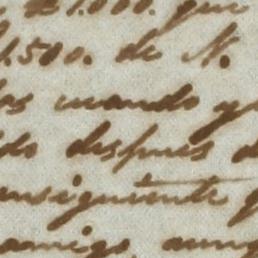 1.000. que
1.500. de N.
los cuando y
do despues d
onsiguiente y
amigo, aunq